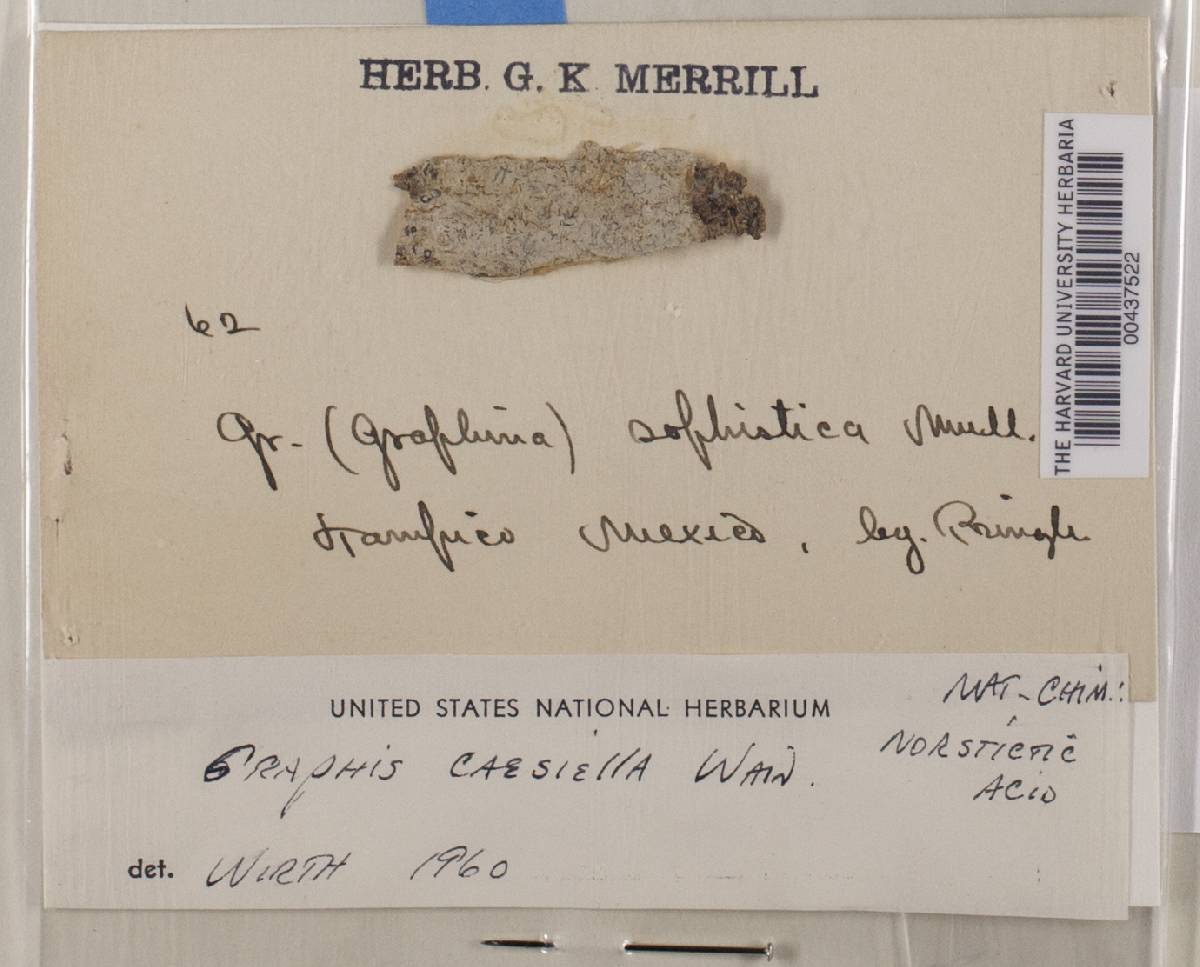 HERB. G. K. MERRILL
62
Gr. (Graphina) sophistica Mull.
Tampico Mexico, leg. Pringle
THE HARVARD UNIVERSITY HERBARIA
00437522
UNITED STATES NATIONAL HERBARIUM
MAT-CHIM.:
NORSTICTIC
ACID
GRAPHIS CAESIELLA WAIN.
det. WIRTH 1960